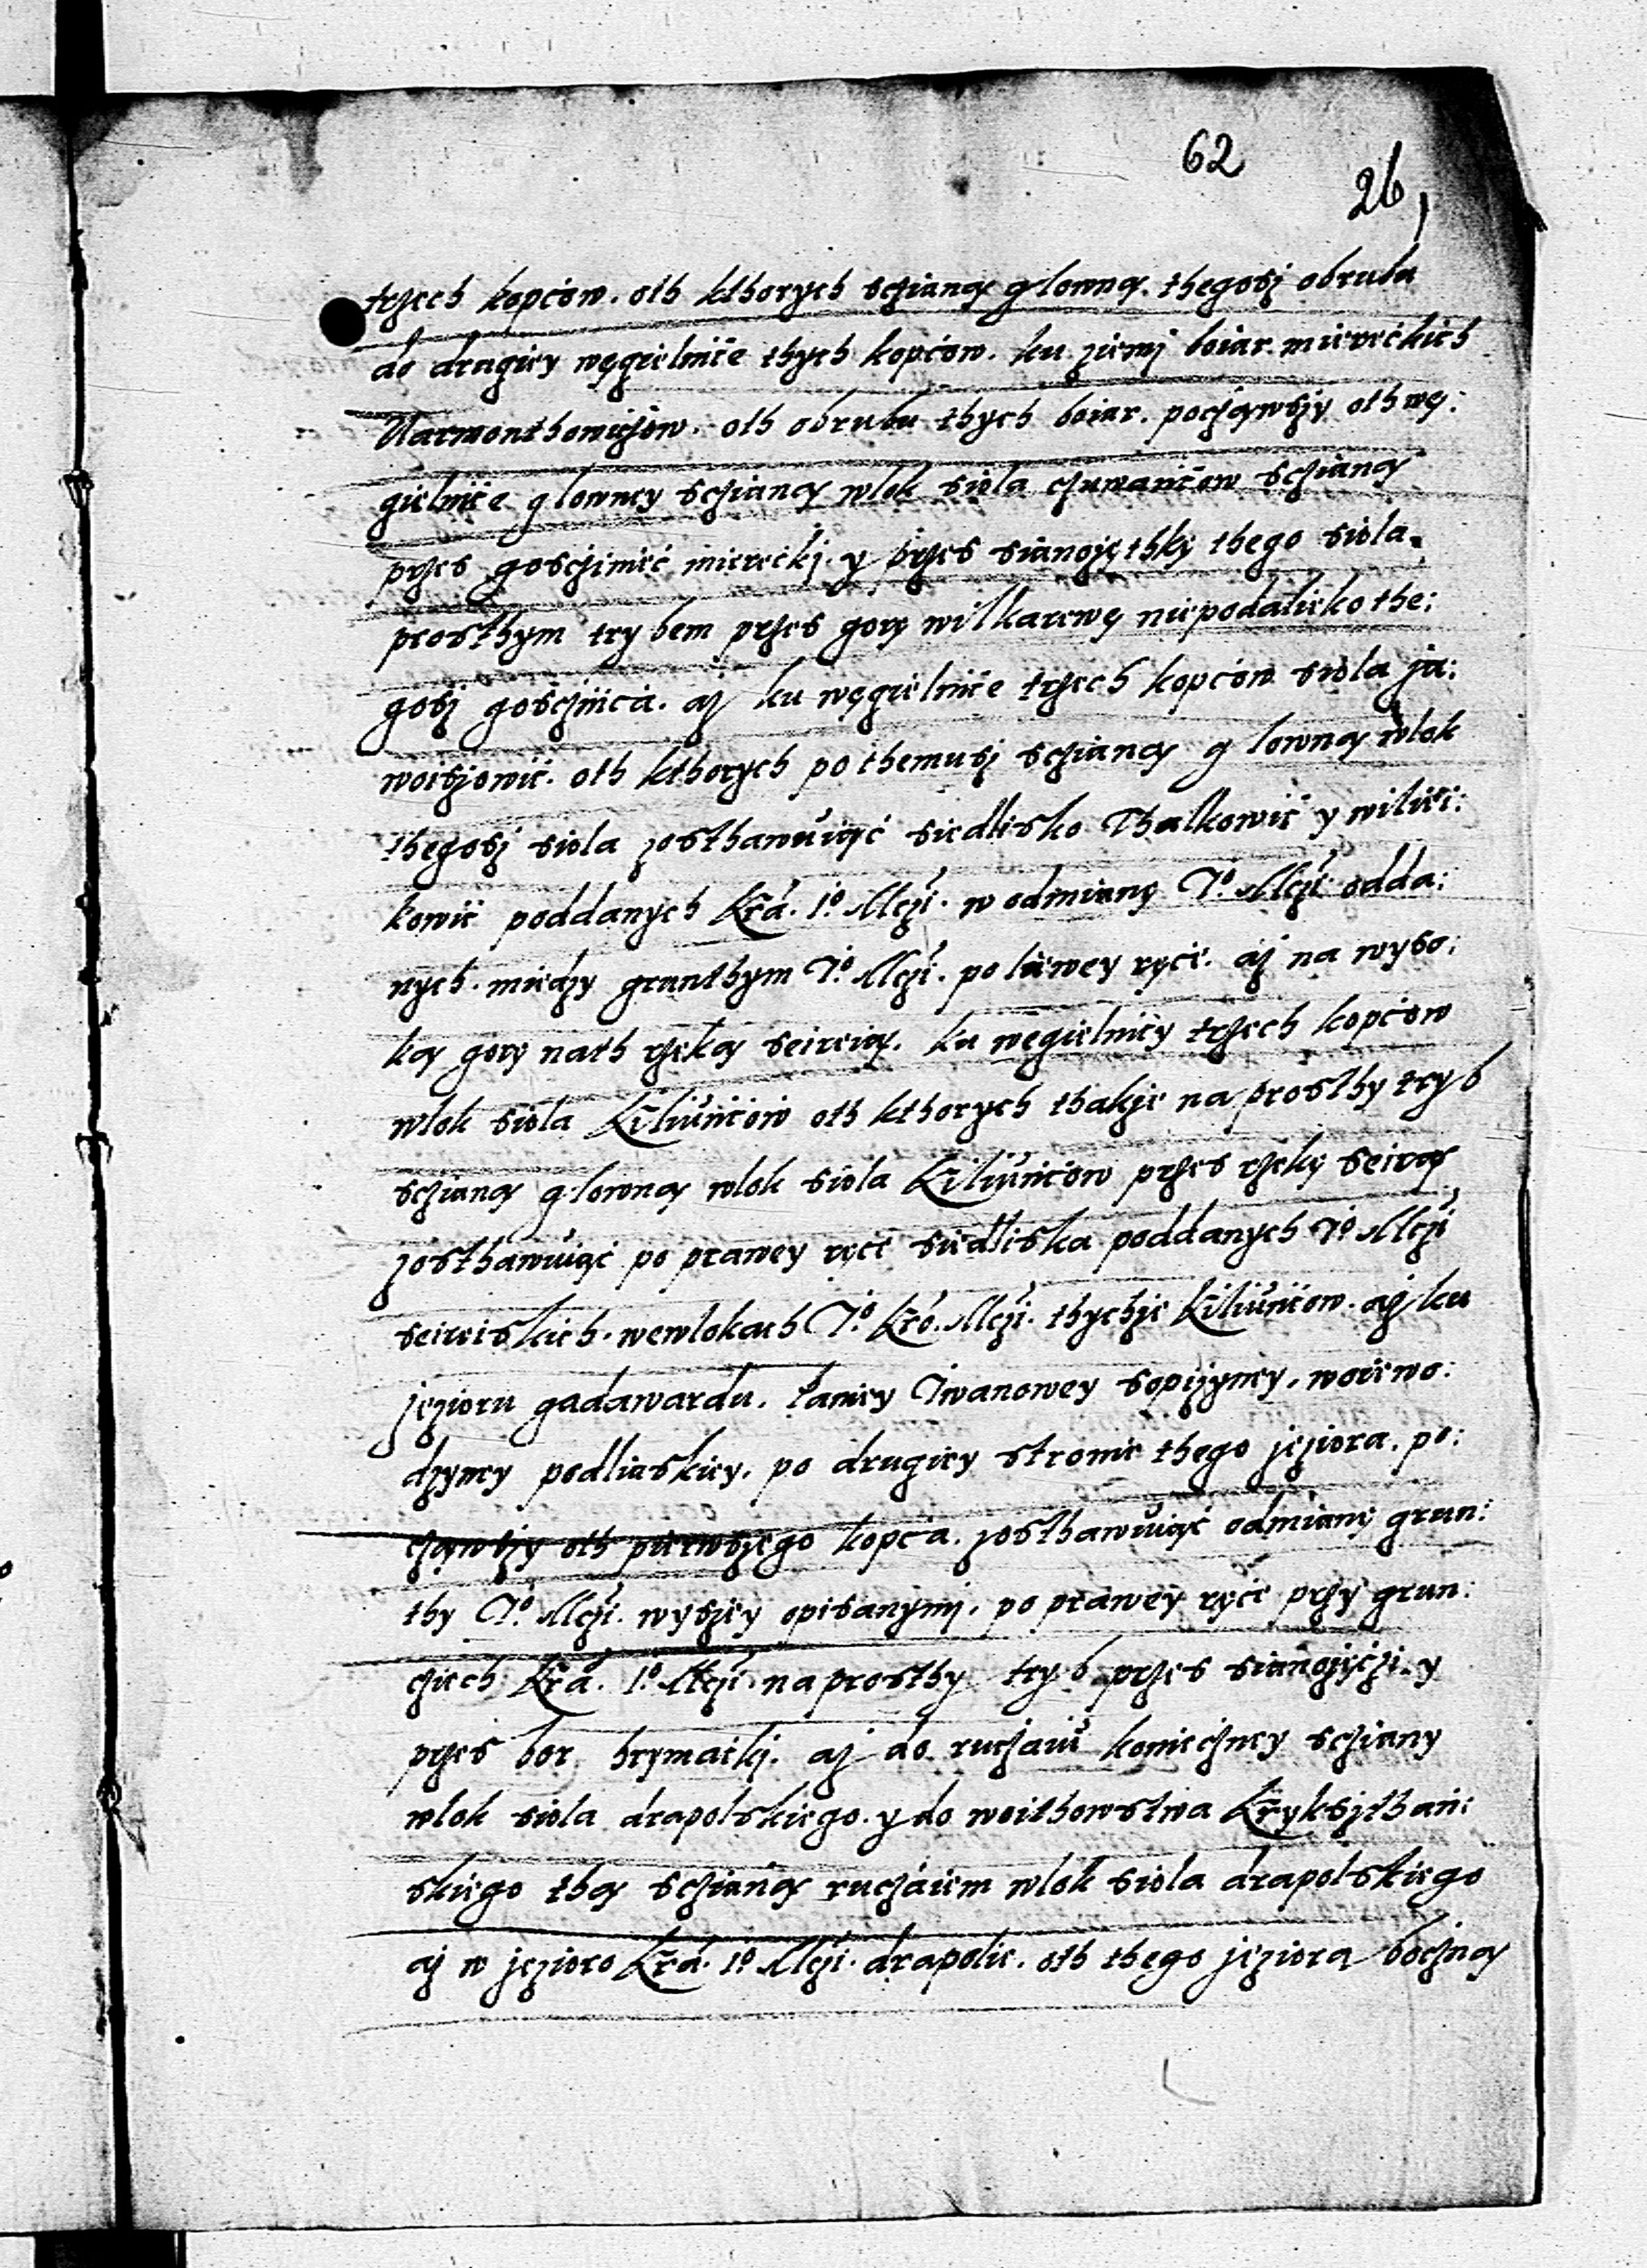 62
26
trzech kopców. oth kthorych scżianą głowną. thegosz obruba
do drugiey węgielnicze thych kopców. ku ziemi boiar. miereckich
Narmonthowiczow. oth obrubu thych boiar. począwszy oth wę:
gielnice głowney scżianą wlok sioła czuwańiców scżianą
przes gosczinieć miereckj. y przes sianożęthkę thego sioła.
prosthym trybem przes gorę wilkarewę niepodaleko the:
gosz goscżińca. aż ku węgielnice trzech kopców sioła ja:
woiszowic. oth kthorych po themusz scżianą głowną wlok
thegosz sioła zosthawuiąć siedlisko Thalkowić y
kowić poddanych Krá. Iº. Mczi. w odmianę Iº. Mczi odda:
nych. miedzy grunthym Iº. Mczi. po lewey ręce. aż na wyso:
ką gorę nath rzeką seireią. ku węgielnicy trzech kopców
wlok sioła Kiliunców oth kthorych thakże na prosthy tryb
scżianą głowną wlok sioła Kiliuńców przes rzekę
zosthawuiąć po prawey ręce siedliska poddanych Iº Mczi
seireiskich. wewlokach Iº. Kró. Mczi. thychże Kiliuńców. aż ku
jezioru gadawardu. Paniey Iwanowey sopiżyney. woiewo:
dzyney podliaskiey. po drugiey stronie thego jeziora. po:
cząwszy oth pierwszego kopca. zosthawuiąć odmianę grun:
thy Iº. Mczi. wyszey opisanymj. po prawey ręce przy grun:
ciech Krá. Iº. Mczi. na prosthy tryb przes sianożęczi. y
przes bor hrymaikj. aż do ruczaiu koniecżney scżiany
wlok sioła drapolskiego. y do woithowstwa Krykszthań:
skiego thą scżianą ruczaiem wlok sioła drapolskiego
aż w jezioro Krá. Iº. Mczi. drapolie. oth thego jeziora bocżną